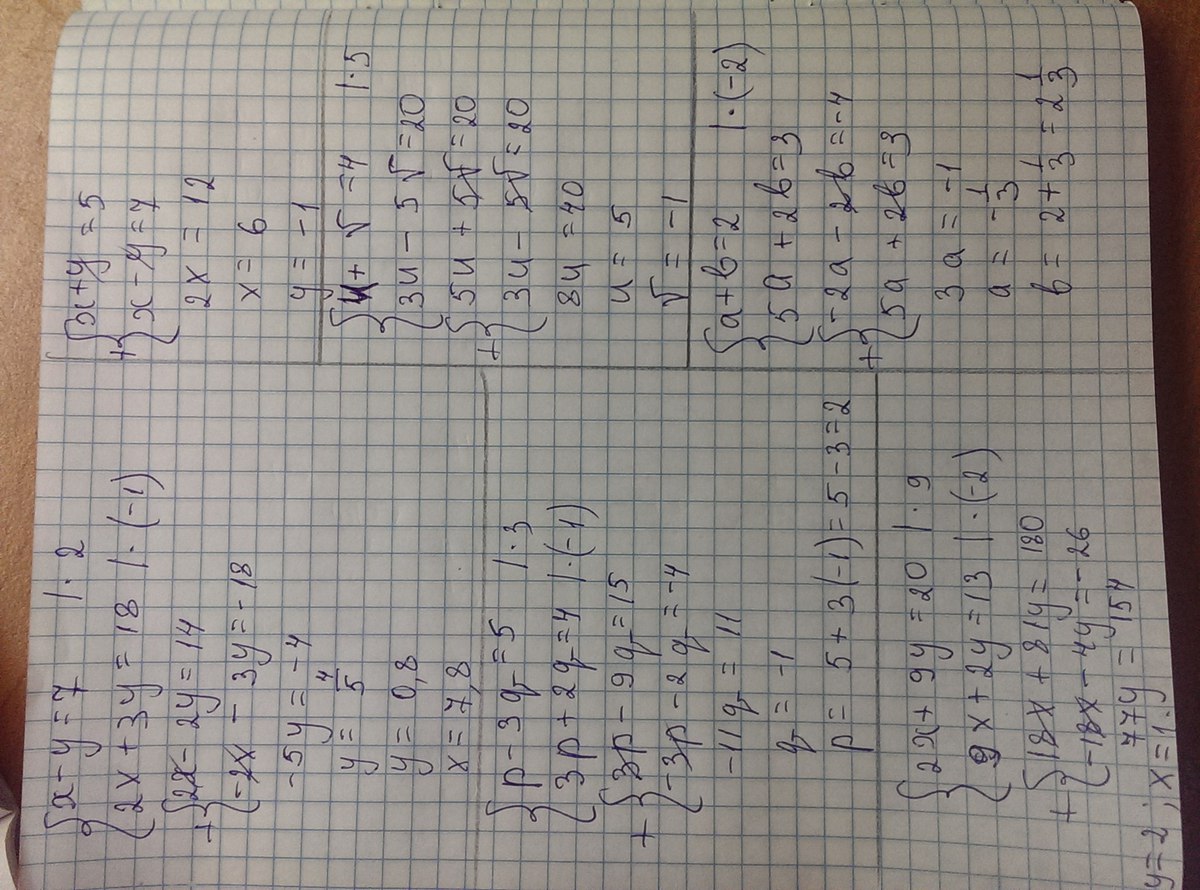 x-y=7 |·2
2x+3y=18 |·(-1)
+ 2x-2y=14
-2x-3y=-18
-5y=-4
y=4/5
y=0,8
x=7,8
p-3q=5 |·3
3p+2q=4 |·(-1)
+ 3p-9q=15
-3p-2q=-4
-11q=11
q=-1
p=5+3(-1)=5-3=2
2x+9y=20 |·9
9x+2y=13 |·(-2)
+ 18x+81y=180
-18x-4y=-26
77y=154
y=2; x=1.
+ x+y=5
x-y=7
2x=12
x=6
y=-1
u+v=4 |·5
3u-5v=20
+ 5u+5v=20
3u-5v=20
8u=40
u=5
v=-1
a+b=2 |·(-2)
5a+2b=3
+ -2a-2b=-4
5a+2b=3
3a=-1
a=-1/3
b=2+1/3=2 1/3